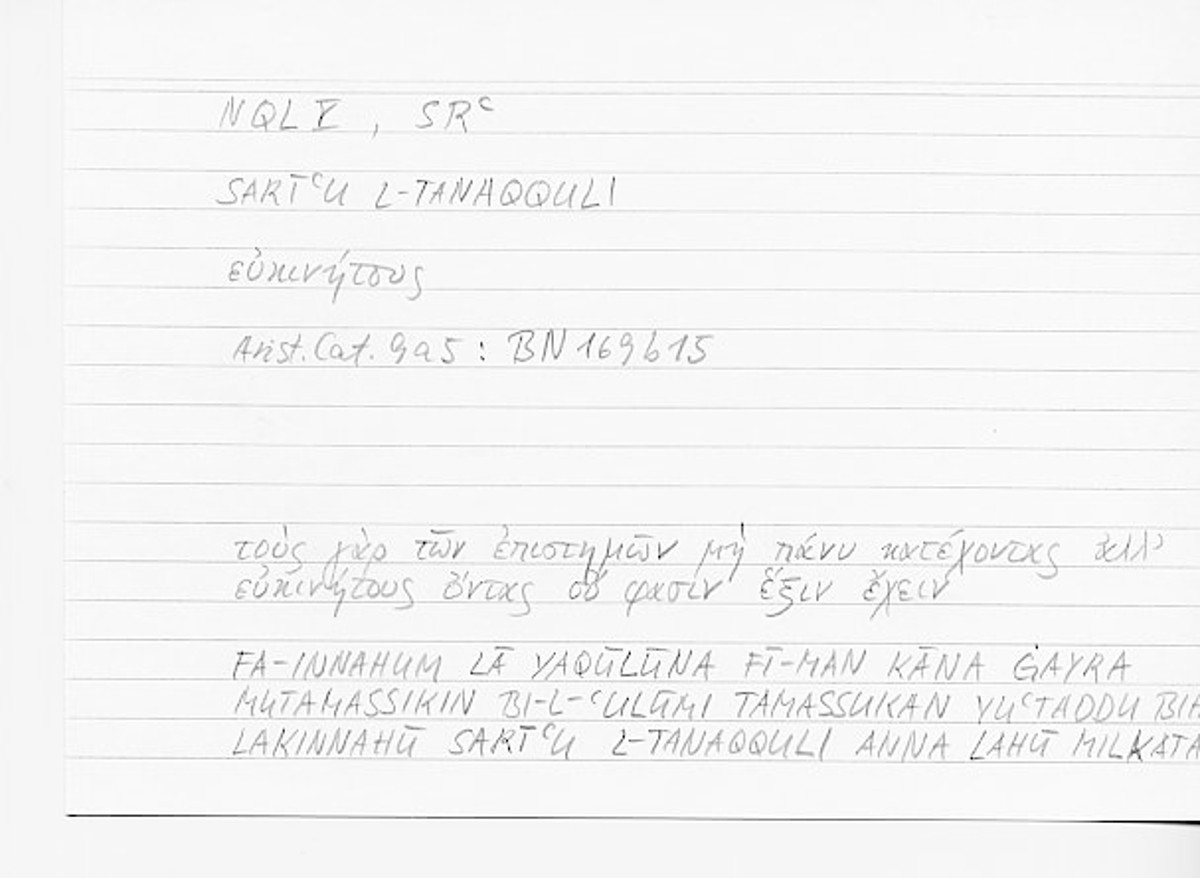 NQL V̄, SRᶜ
SARĪᶜU L-TANAQQULI
εὐκινήτους
Arist. Cat. 9a5 : BN 169b15
τοὺς γὰρ τῶν ἐπιστημῶν μὴ πάνυ κατέχοντας ἀλλ᾽
εὐκινήτους ὄντας οὔ φασιν ἕξιν ἔχειν
FA-INNAHUM LĀ YAQŪLŪNA FĪ-MAN KĀNA ĠAYRA
MUTAMASSIKIN BI-L-ᶜULŪMI TAMASSUKAN YUᶜTADDU
LAKINNAHŪ SARĪᶜU L-TANAQQULI ANNA LAHŪ MILKATA